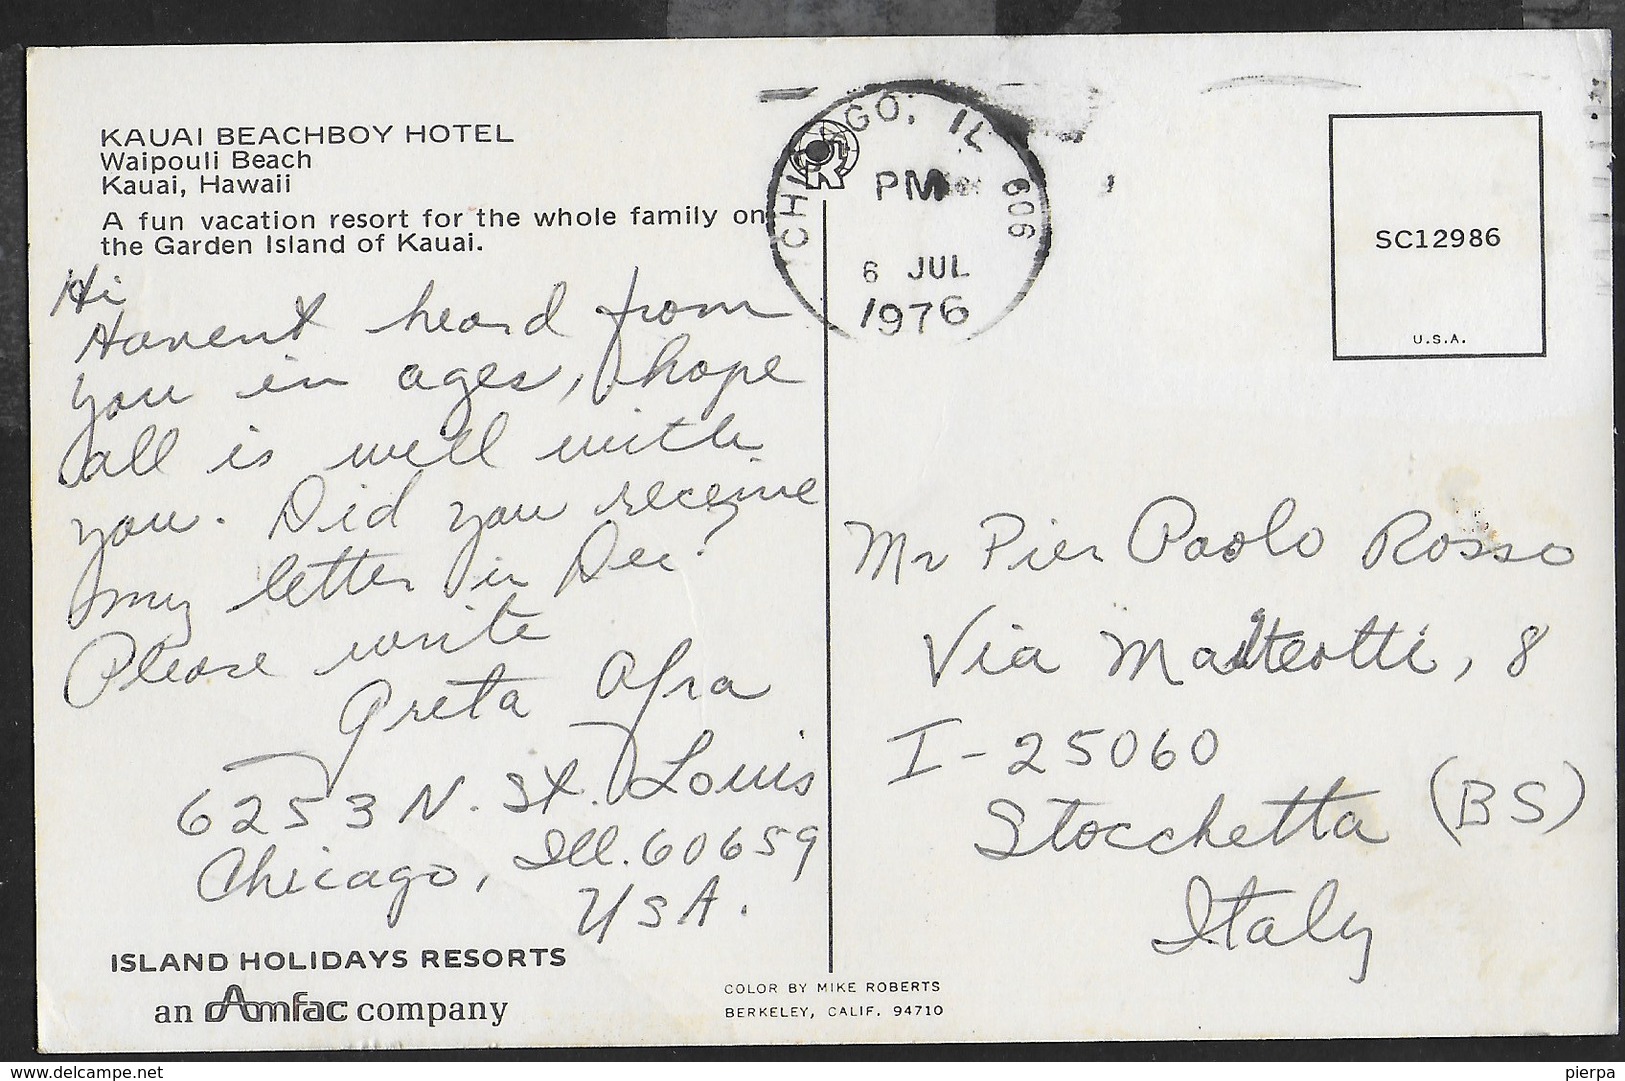 KAUAI BEACHBOY HOTEL
Waipouli Beach
Kauai, Hawaii
A fun vacation resort for the whole family on
the Garden Island of Kauai.
Hi
Havent heard from
you in ages, hope
all is well with
you. Did you receive
my letter in Dec?
Please write
Greta Afra
6253 N. St. Louis
Chicago, Ill. 60659
USA.
ISLAND HOLIDAYS RESORTS
an Amfac company
CHICAGO, IL 606
PM
6 JUL
1976
SC12986
U.S.A.
Mr Pier Paolo Rosso
Via Matteotti, 8
I-25060
Stocchetta (BS)
Italy
COLOR BY MIKE ROBERTS
BERKELEY, CALIF. 94710
www.delcampe.net
pierpa